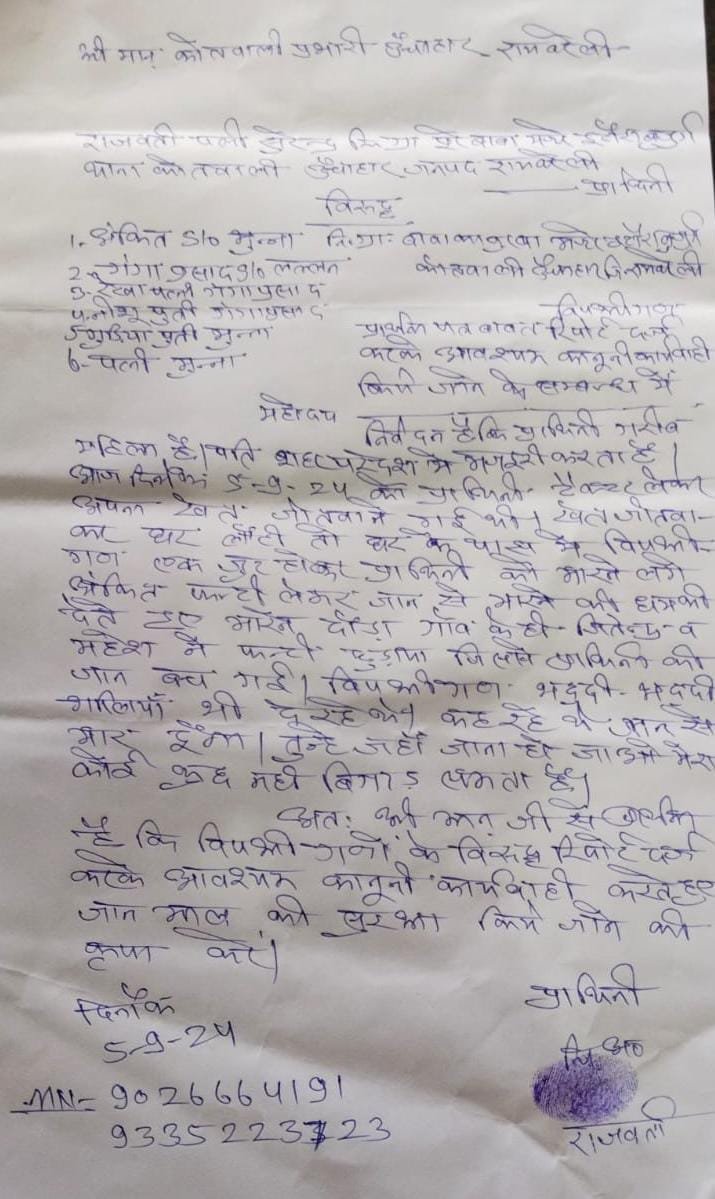 श्री मान् कोतवाली प्रभारी ऊँचाहार रायबरेली
राजवती पत्नी सुरेन्द्र मजरे
थाना कोतवाली ऊँचाहार जनपद रायबरेली
प्रार्थिनी
विरुद्ध
1. अंकित S/o मुन्ना नि.ग्रा. बाबा का पुरवा मजरे
2- गंगा प्रसाद S/o लल्लन कोतवाली ऊँचाहार जि. रायबरेली
3- रेखा पत्नी गंगा प्रसाद
विपक्षीगण
4. नीशू पुत्री गंगा प्रसाद
प्रार्थना पत्र बावत रिपोर्ट दर्ज
5. गुडिया पुत्री मुन्ना
करके आवश्यक कानूनी कार्यवाही
6- पत्नी मुन्ना
किये जाने के सम्बन्ध में
महोदय
निवेदन है कि प्रार्थिनी गरीब
महिला है। पति शहर परदेश में मजदूरी करता है।
आज दिनांक 5-9-24 को प्रार्थिनी ट्रैक्टर लेकर
अपना खेत जोतवाने गई थी। खेत जोतवा-
कर घर लौटी तो घर के पास में विपक्षी-
गण एक जुट होकर प्रार्थिनी को मारने लगे
अंकित फन्टी लेकर जान से मारने की धमकी
देते हुए मारने दौड़ा गाँव के ही जितेन्द्र व
महेश ने फन्टी छुड़ाया जिससे प्रार्थिनी की
जान बच गई। विपक्षीगण भद्दी-भद्दी
गालियाँ भी दे रहे थे। कह रहे थे जान से
मार दूँगा। तुम्हे जहाँ जाना हो जाओ मेरा
कोई कुछ नहीं बिगाड़ सकता है।
अतः श्री मान् जी से प्रार्थना
है कि विपक्षी गणों के विरुद्ध रिपोर्ट दर्ज
करके आवश्यक कानूनी कार्यवाही करते हुए
जान माल की सुरक्षा किये जाने की
कृपा करें।
दिनाँक
प्रार्थिनी
5-9-24
नि.अं०
MN- 9026664191
9335223723
राजवती